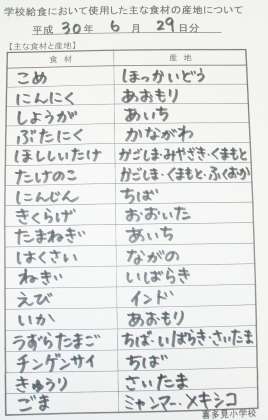 学校給食において使用した主な食材の産地について
平成 30年 6月 29日分
【主な食材と産地】
食材 産地
こめ ほっかいどう
にんにく あおもり
しょうが あいち
ぶたにく かながわ
ほししいたけ かごしま・みやざき・くまもと
たけのこ かごしま・くまもと・ふくおか
にんじん ちば
きくらげ おおいた
たまねぎ あいち
はくさい ながの
ねぎ いばらき
えび インド
いか あおもり
うずらたまご ちば・いばらき・さいたま
チンゲンサイ ちば
きゅうり さいたま
ごま ミャンマー・メキシコ
喜多見小学校